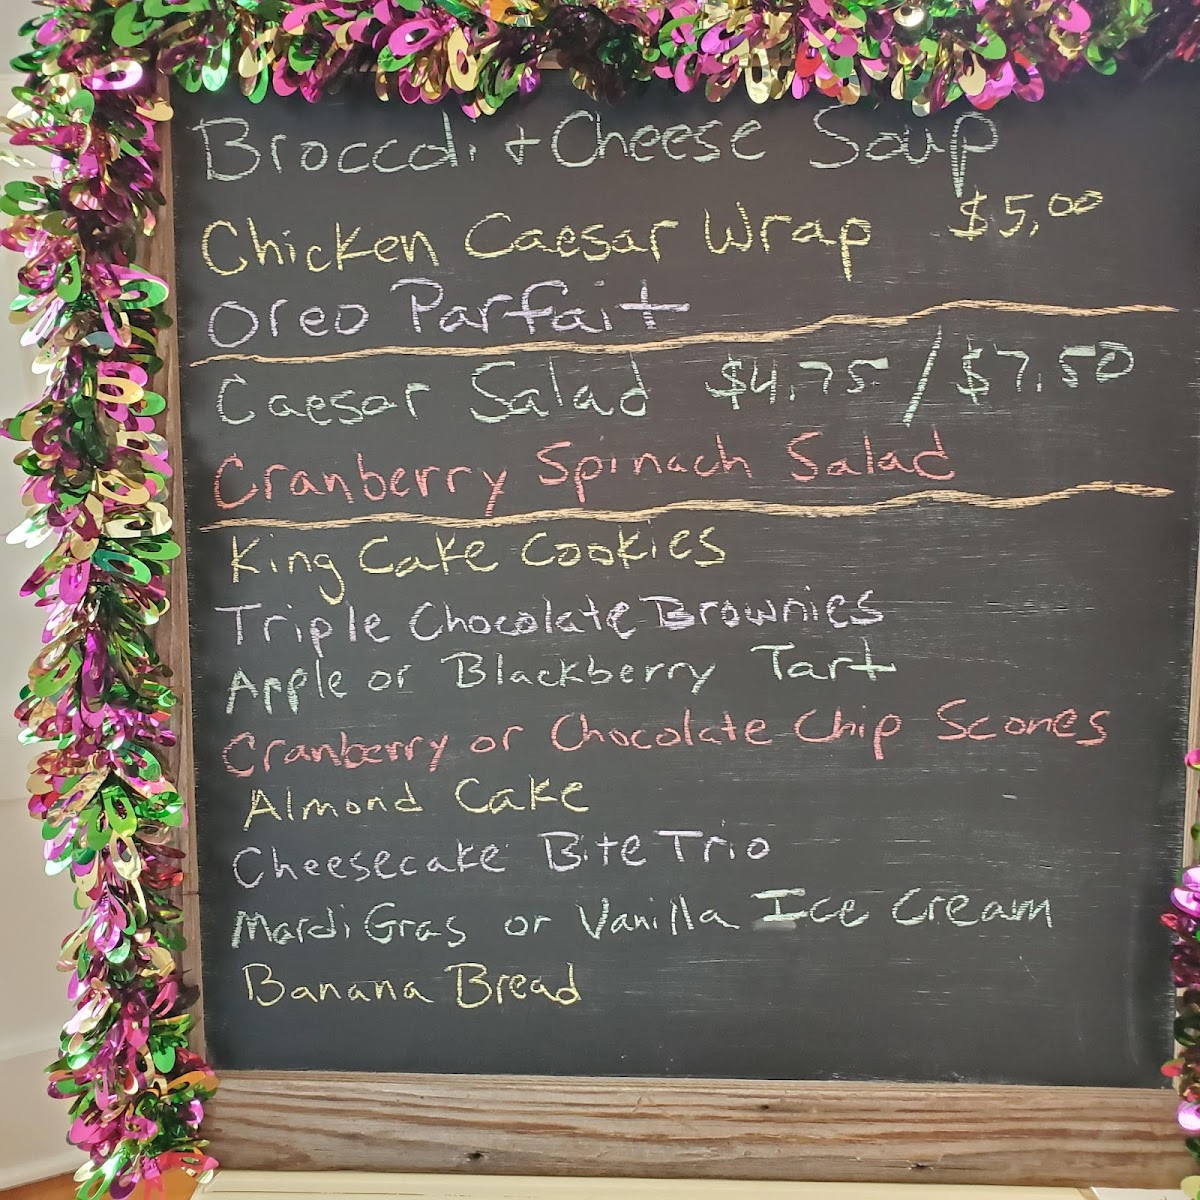 Broccoli + Cheese Soup
Chicken Caesar Wrap $5.00
Oreo Parfait
Caesar Salad $4.75 / $7.50
Cranberry Spinach Salad
King Cake Cookies
Triple Chocolate Brownies
Apple or Blackberry Tart
Cranberry or Chocolate Chip Scones
Almond Cake
Cheesecake Bite Trio
Mardi Gras or Vanilla Ice Cream
Banana Bread